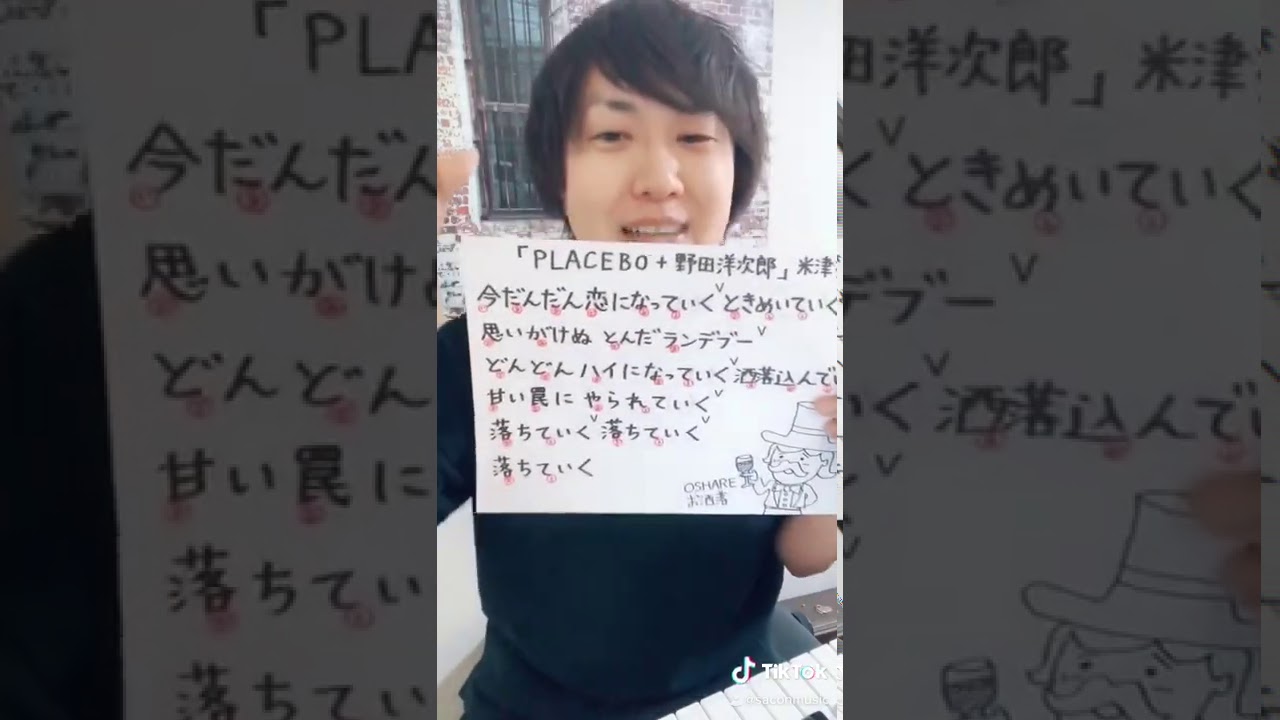 「PLACEBO + 野田洋次郎」米津
今だんだん恋になっていく ときめいていく
思いがけぬ とんだランデブー
どんどんハイになっていく 洒落込んで
甘い罠に やられていく
落ちていく 落ちていく
落ちていく
OSHARE
お洒落
TikTok
@saconmusic